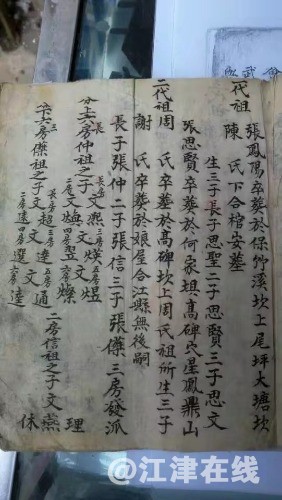 張鳳陽卒葬於保竹溪坎上尾坪大塘坎
一代祖
陳 氏下合棺安墓
生三子長子思聖二子思賢三子思文
張思賢卒葬於何家垻高碑民星鳳鼎山
二代祖周 氏卒葬於高碑坎上周氏祖所生三子
謝 氏卒葬於娘屋合江縣無後嗣
長子張仲二子張信三子張傑三房發派
長 長房文熙 三房燦 五房煜
分上六房仲祖之子文
二房文煥 四房翌 六房燦
三 長房超 三房達 五房通
分下六房傑祖之子文 文 文
二房遠 四房選 六房逵
二房信祖之子文
理
燕
休
@江津在线